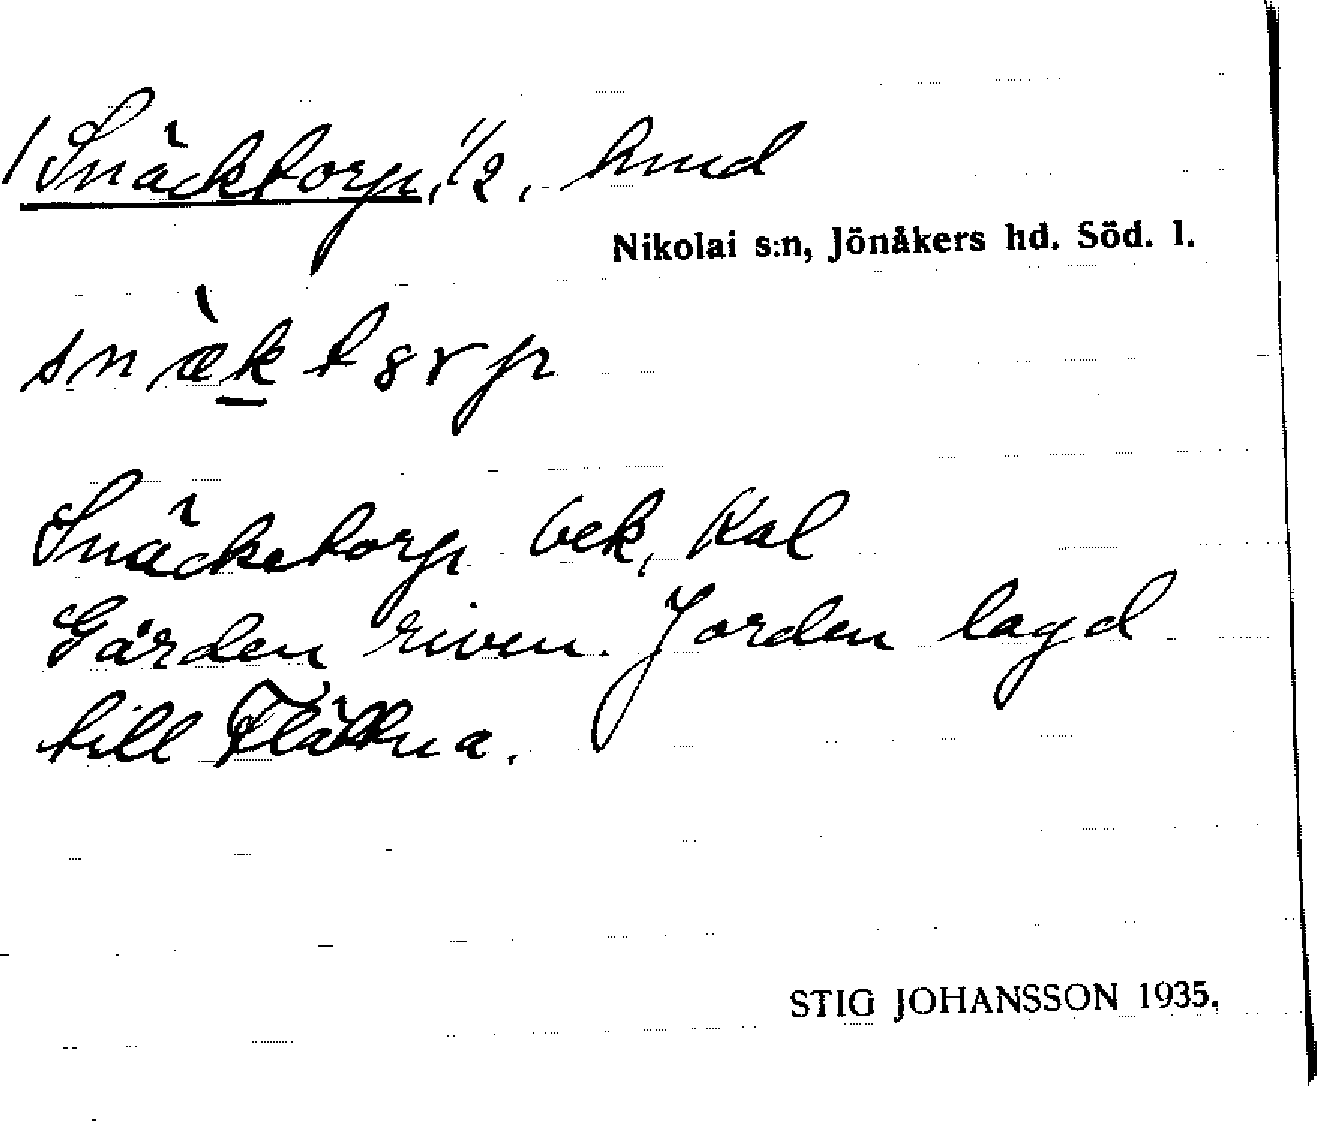 / Snäcktorp, 1/2, hmd
Nikolai s:n, Jönåkers hd. Söd. l.
snæ̀kt8rp
Snäcketorp bek, Kal
Gården riven. Jorden lagd
till Flättna.
STIG JOHANSSON 1935.